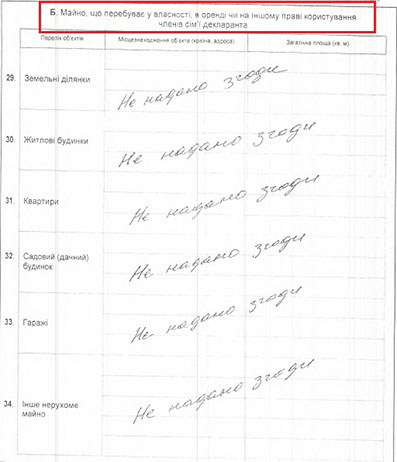 Б. Майно, що перебуває у власності, в оренді чи на іншому праві користування
членів сім'ї декларанта
Перелік об'єктів Місцезнаходження об'єкта (країна, адреса) Загальна площа (кв. м)
29. Земельні ділянки Не надано згоди
30. Житлові будинки Не надано згоди
31. Квартири Не надано згоди
32. Садовий (дачний)
будинок Не надано згоди
33. Гаражі Не надано згоди
34. Інше нерухоме
майно Не надано згоди